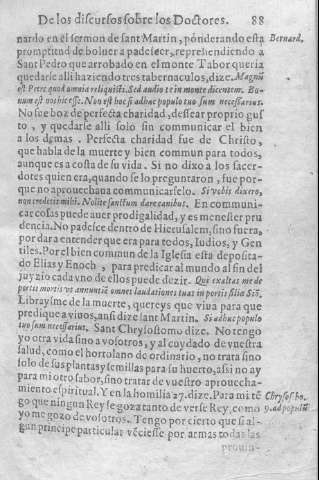 De los discursos sobre los Doctores. 88
nardo en el sermon de sant Martin, ponderando esta Bernard.
promptitud de boluer a padescer, reprehendiendo a
Sant Pedro que arrobado en el monte Tabor queria
quedarse alli haziendo tres tabernaculos, dize. Magnũ
est Petre quod omnia reliquisti. Sed audio te in monte dicentem. Bo-
num est nos hic esse. Non est hoc si adhuc populo tuo sum necessarius.
No fue boz de perfecta charidad, dessear proprio gus
to, y quedarse alli solo sin communicar el bien
a los demas. Perfecta charidad fue de Christo,
que habla de la muerte y bien commun para todos,
aunque es a costa de su vida. Si no dixo a los sacer-
dotes quien era, quando se lo preguntaron, fue por-
que no aprouechaua communicarselo. Si vobis dixero,
non credetis mihi. Nolite sanctum dare canibus. En communi-
car cosas puede auer prodigalidad, y es menester pru
dencia. No padesce dentro de Hierusalem, sino fuera,
por dar a entender que era para todos, Iudios, y Gen
tiles. Por el bien commun de la Iglesia esta deposita-
do Elias y Enoch, para predicar al mundo al fin del
juyzio cada vno de ellos puede dezir. Qui exaltas me de
portis mortis vt annuntiẽ omnes laudationes tuas in portis filiæ Siõ.
Librays me de la muerte, quereys que viua para que
predique a viuos, ansi dize sant Martin. Si adhuc populo
tuo sum necessarius. Sant Chrysostomo dize. No tengo
yo otra vida sino a vosotros, y al cuydado de vuestra
salud, como el hortolano de ordinario, no trata sino
solo de sus plantas y semillas para su huerto, assi no ay
para mi otro sabor, sino tratar de vuestro aprouecha-
miento espiritual. Y en la homilia 27. dize. Para mi tẽ Chrysos. ho.
go que ningun Rey se goza tanto de verse Rey, como 9. ad populũ
yo me gozo de vosotros. Tengo por cierto que si al-
gun principe particular vẽciesse por armas todas las
prouin-